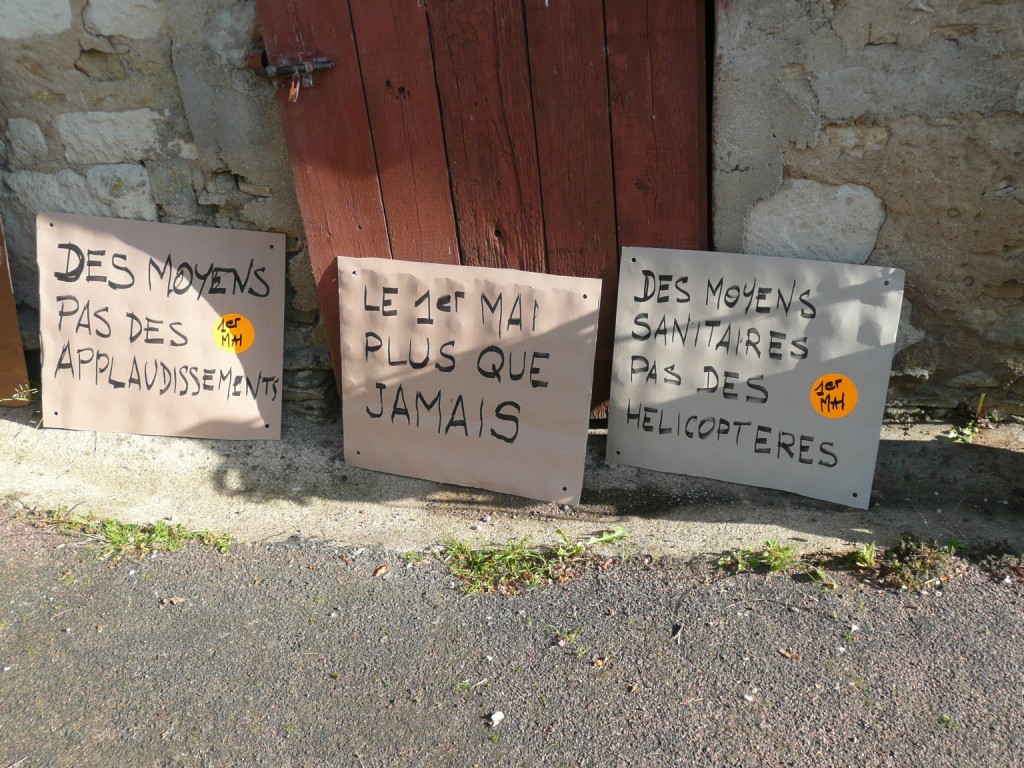 DES MOYENS
PAS DES
APPLAUDISSEMENTS
1er
MAI
LE 1er MAI
PLUS QUE
JAMAIS
DES MOYENS
SANITAIRES
PAS DES
HELICOPTERES
1er
MAI